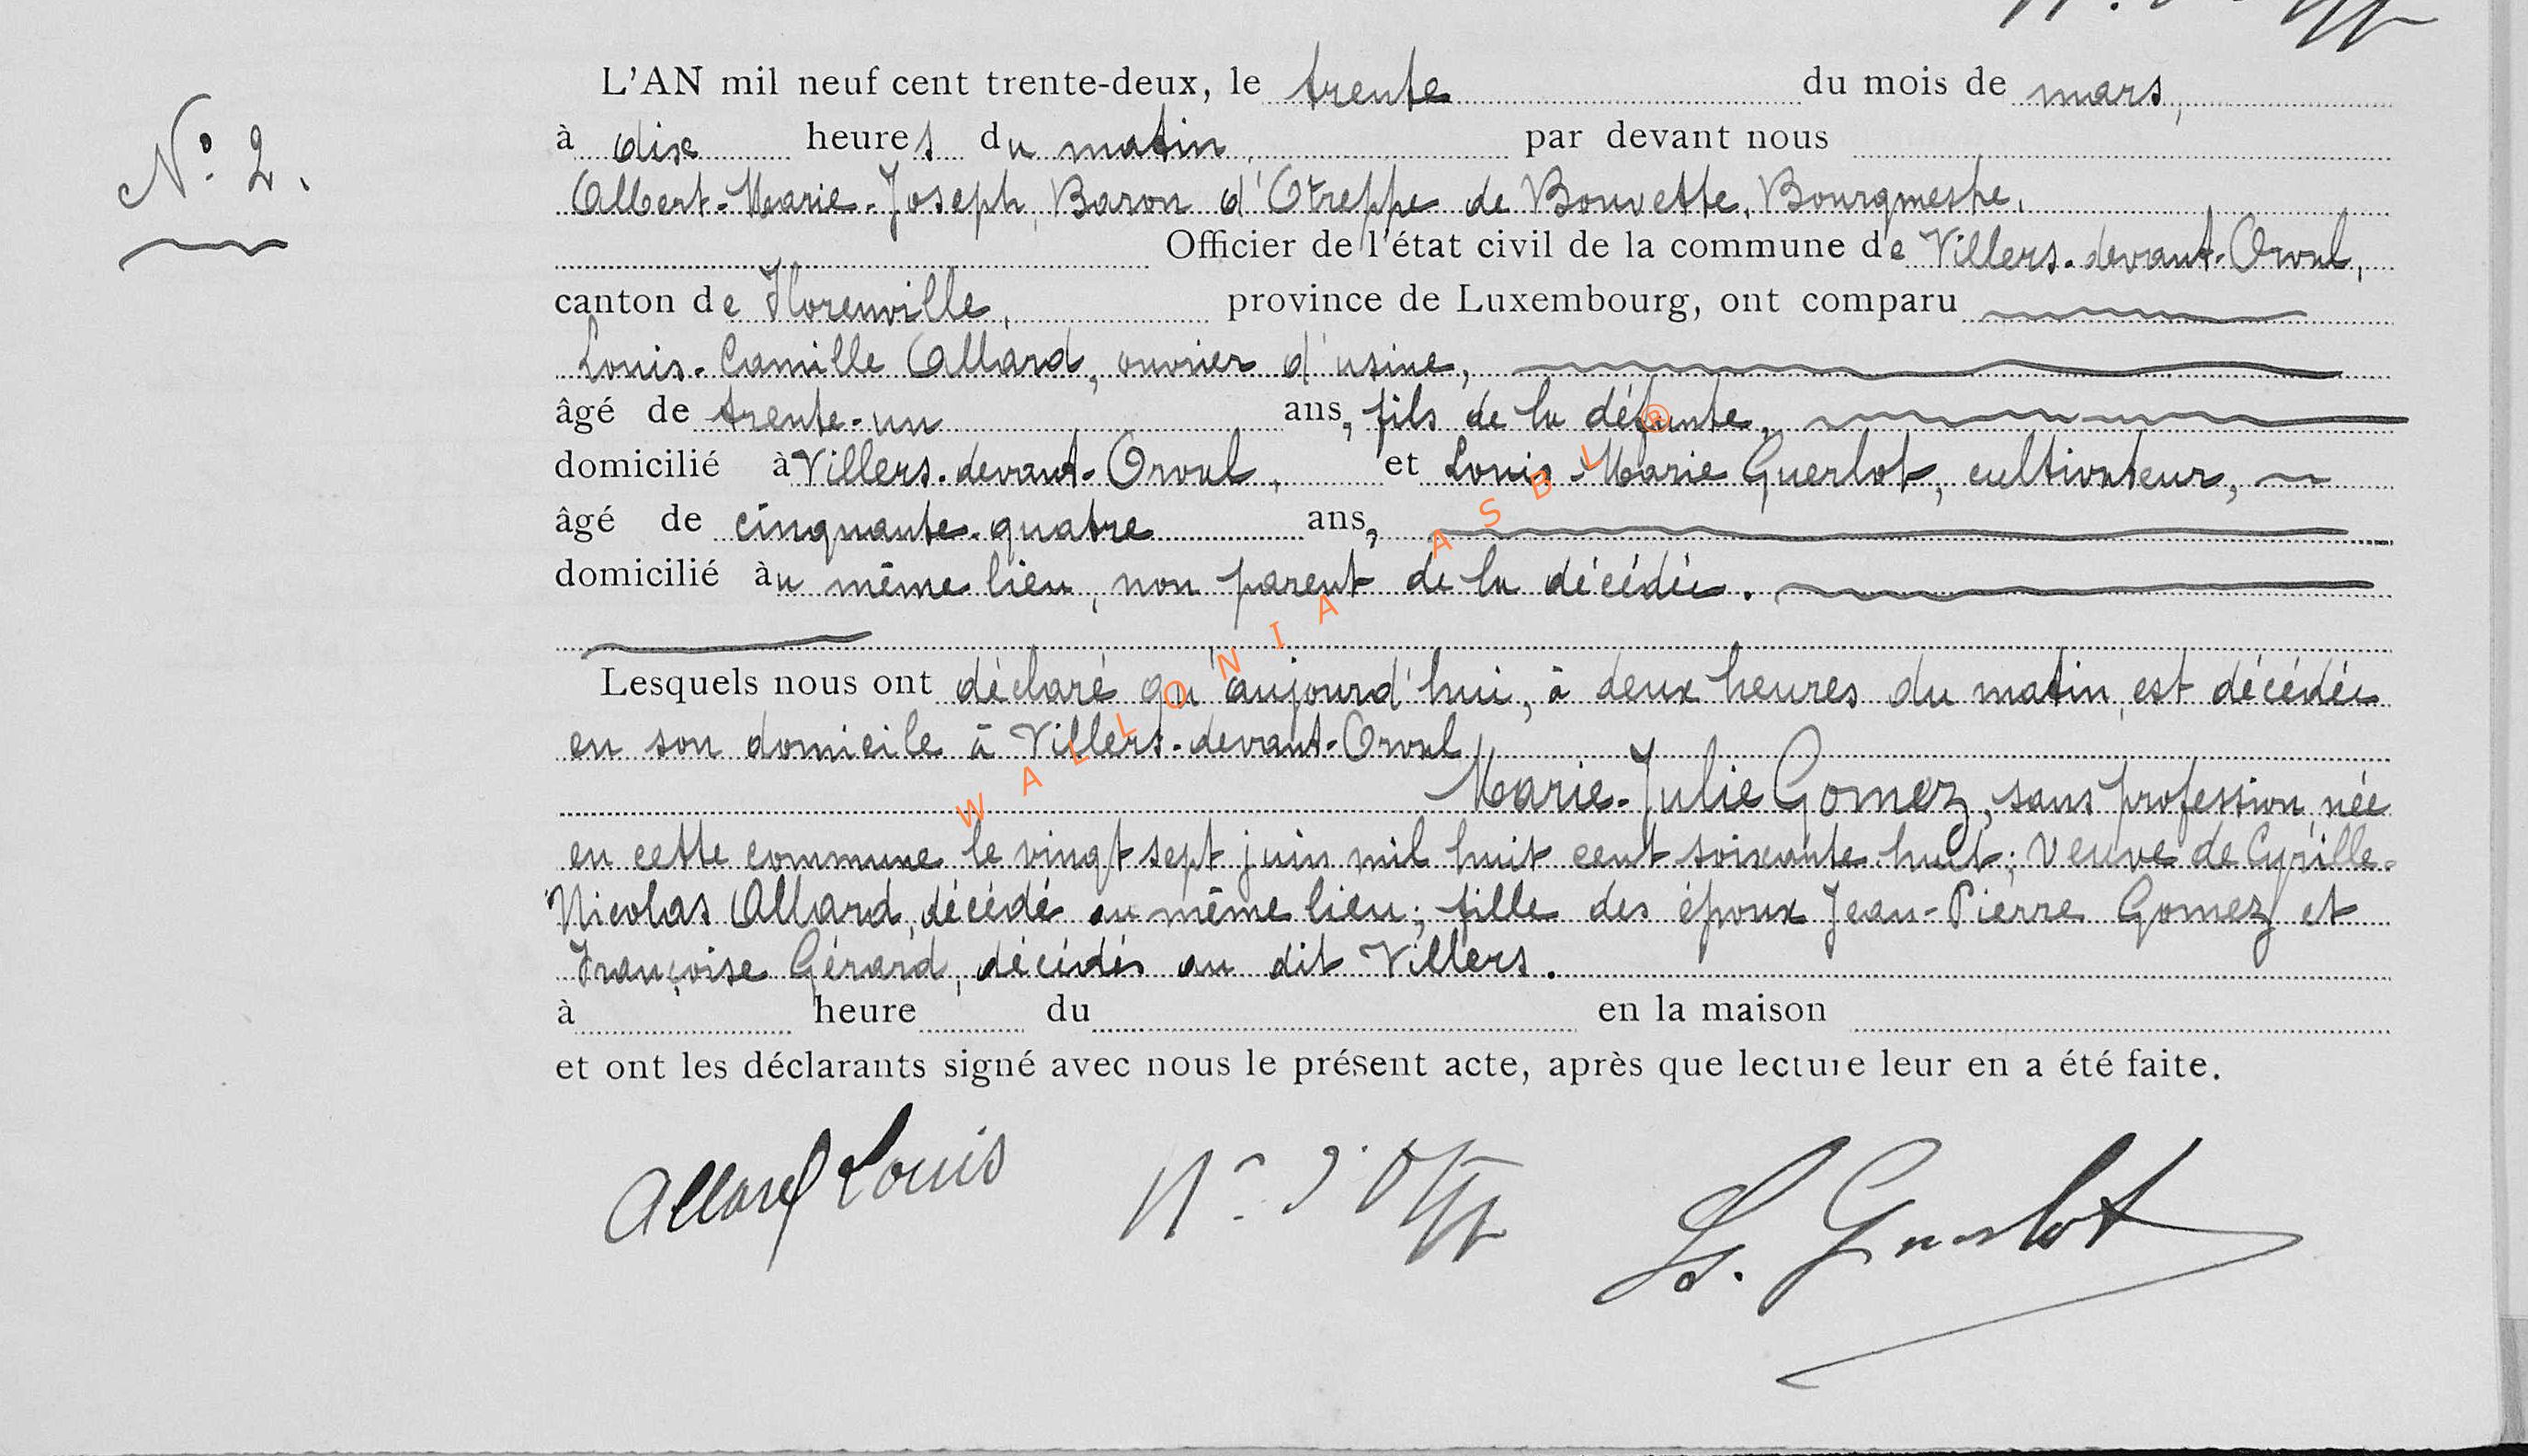 L'AN mil neuf cent trente-deux, le trente du mois de mars,
N° 2.
à dix heures du matin, par devant nous
Albert-Marie-Joseph, Baron d'Otreppe de Bouvette, Bourgmestre,
Officier de l'état civil de la commune de Villers-devant-Orval,
canton de Florenville, province de Luxembourg, ont comparu
Louis-Camille Allard, ouvrier d'usine,
âgé de trente-un ans, fils de la défunte,
domicilié à Villers-devant-Orval, et Louis-Marie Guerlot, cultivateur,
âgé de cinquante-quatre ans,
domicilié au même lieu, non parent de la décédée.
Lesquels nous ont déclaré qu'aujourd'hui, à deux heures du matin, est décédée
en son domicile à Villers-devant-Orval
Marie-Julie Gomez, sans profession, née
en cette commune le vingt sept juin mil huit cent soixante-huit; veuve de Cyrille-
Nicolas Allard, décédé au même lieu; fille des époux Jean-Pierre Gomez et
Françoise Gérard, décédés au dit Villers.
à heure du en la maison
et ont les déclarants signé avec nous le présent acte, après que lecture leur en a été faite.
Allard Louis L. Guerlot
WALLONIA ASBL ®